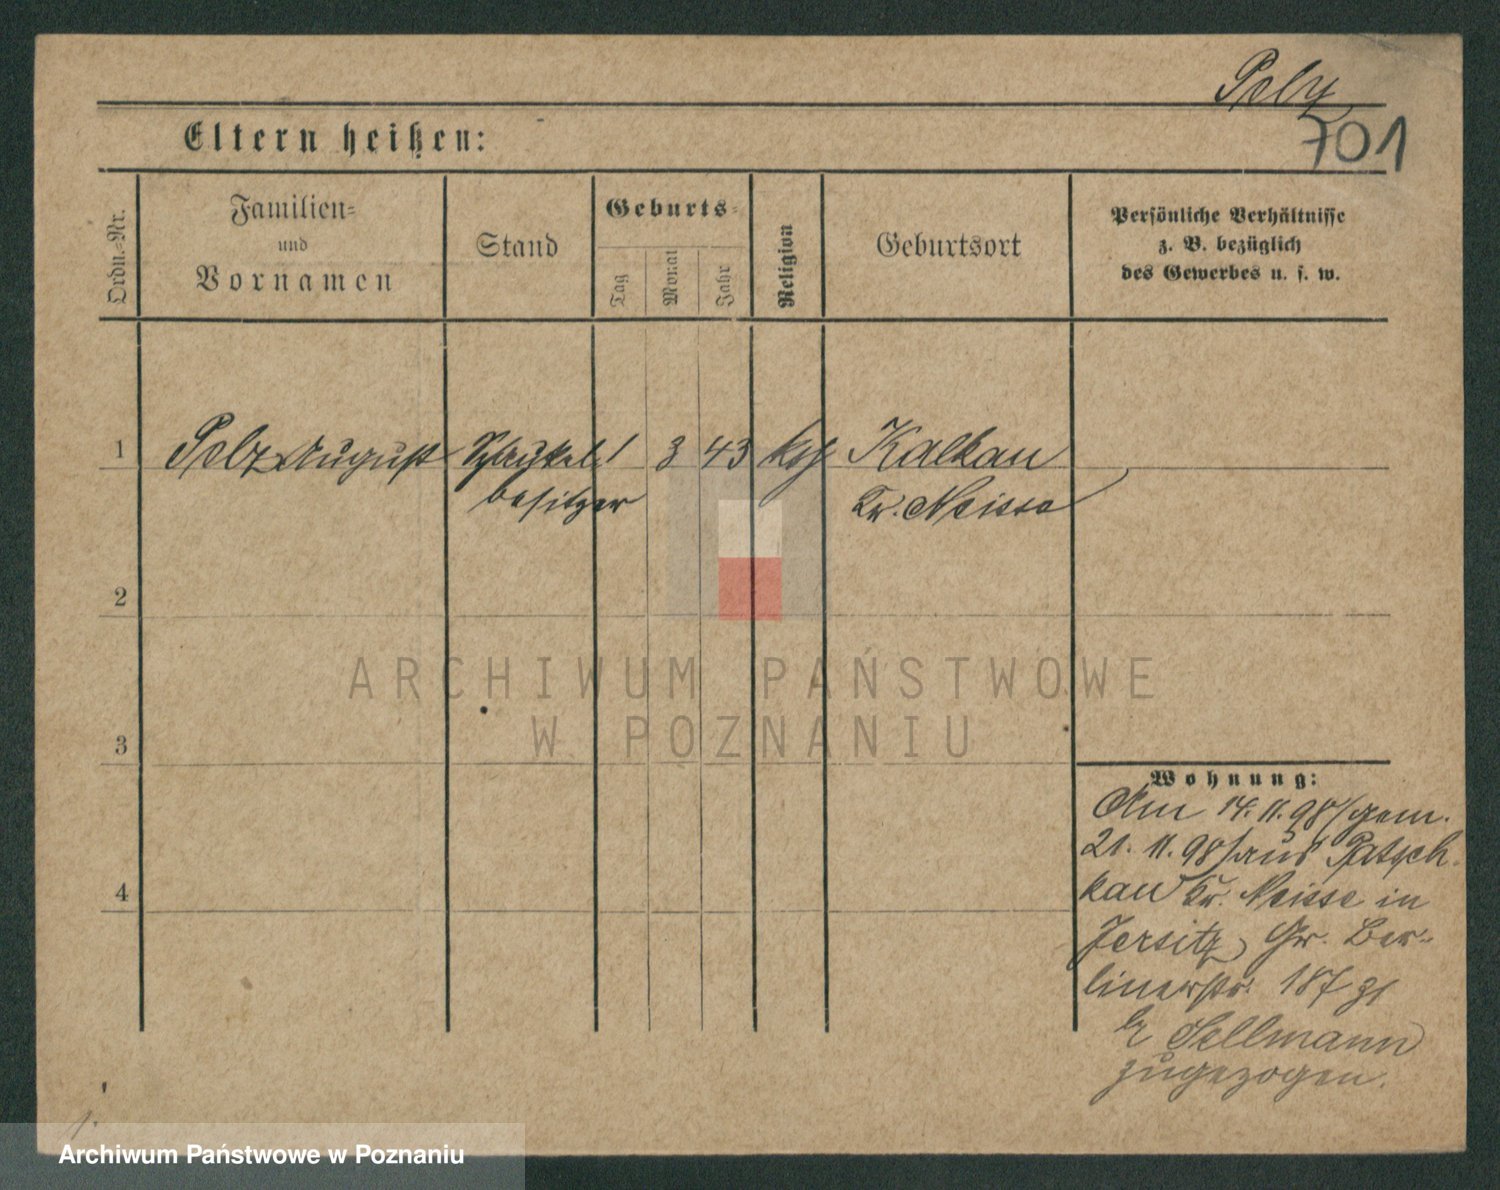 Pelz
701
Eltern heißen:
Ordn.-Nr.
Familien-
und
Vornamen
Stand
Geburts-
Tag
Monat
Jahr
Religion
Geburtsort
Persönliche Verhältnisse
z. B. bezüglich
des Gewerbes u. s. w.
1 Pelz August 1 3 43 kth Kalkau
besitzer Kr. Neisse
2
3
4
Wohnung:
Am 14.11.98/gem.
21.11.98/aus Patsch-
kau Kr. Neisse in
Jersitz, Gr. Ber-
linerstr. 187
b/ Sellmann
zugezogen.
ARCHIWUM PAŃSTWOWE
W POZNANIU
Archiwum Państwowe w Poznaniu